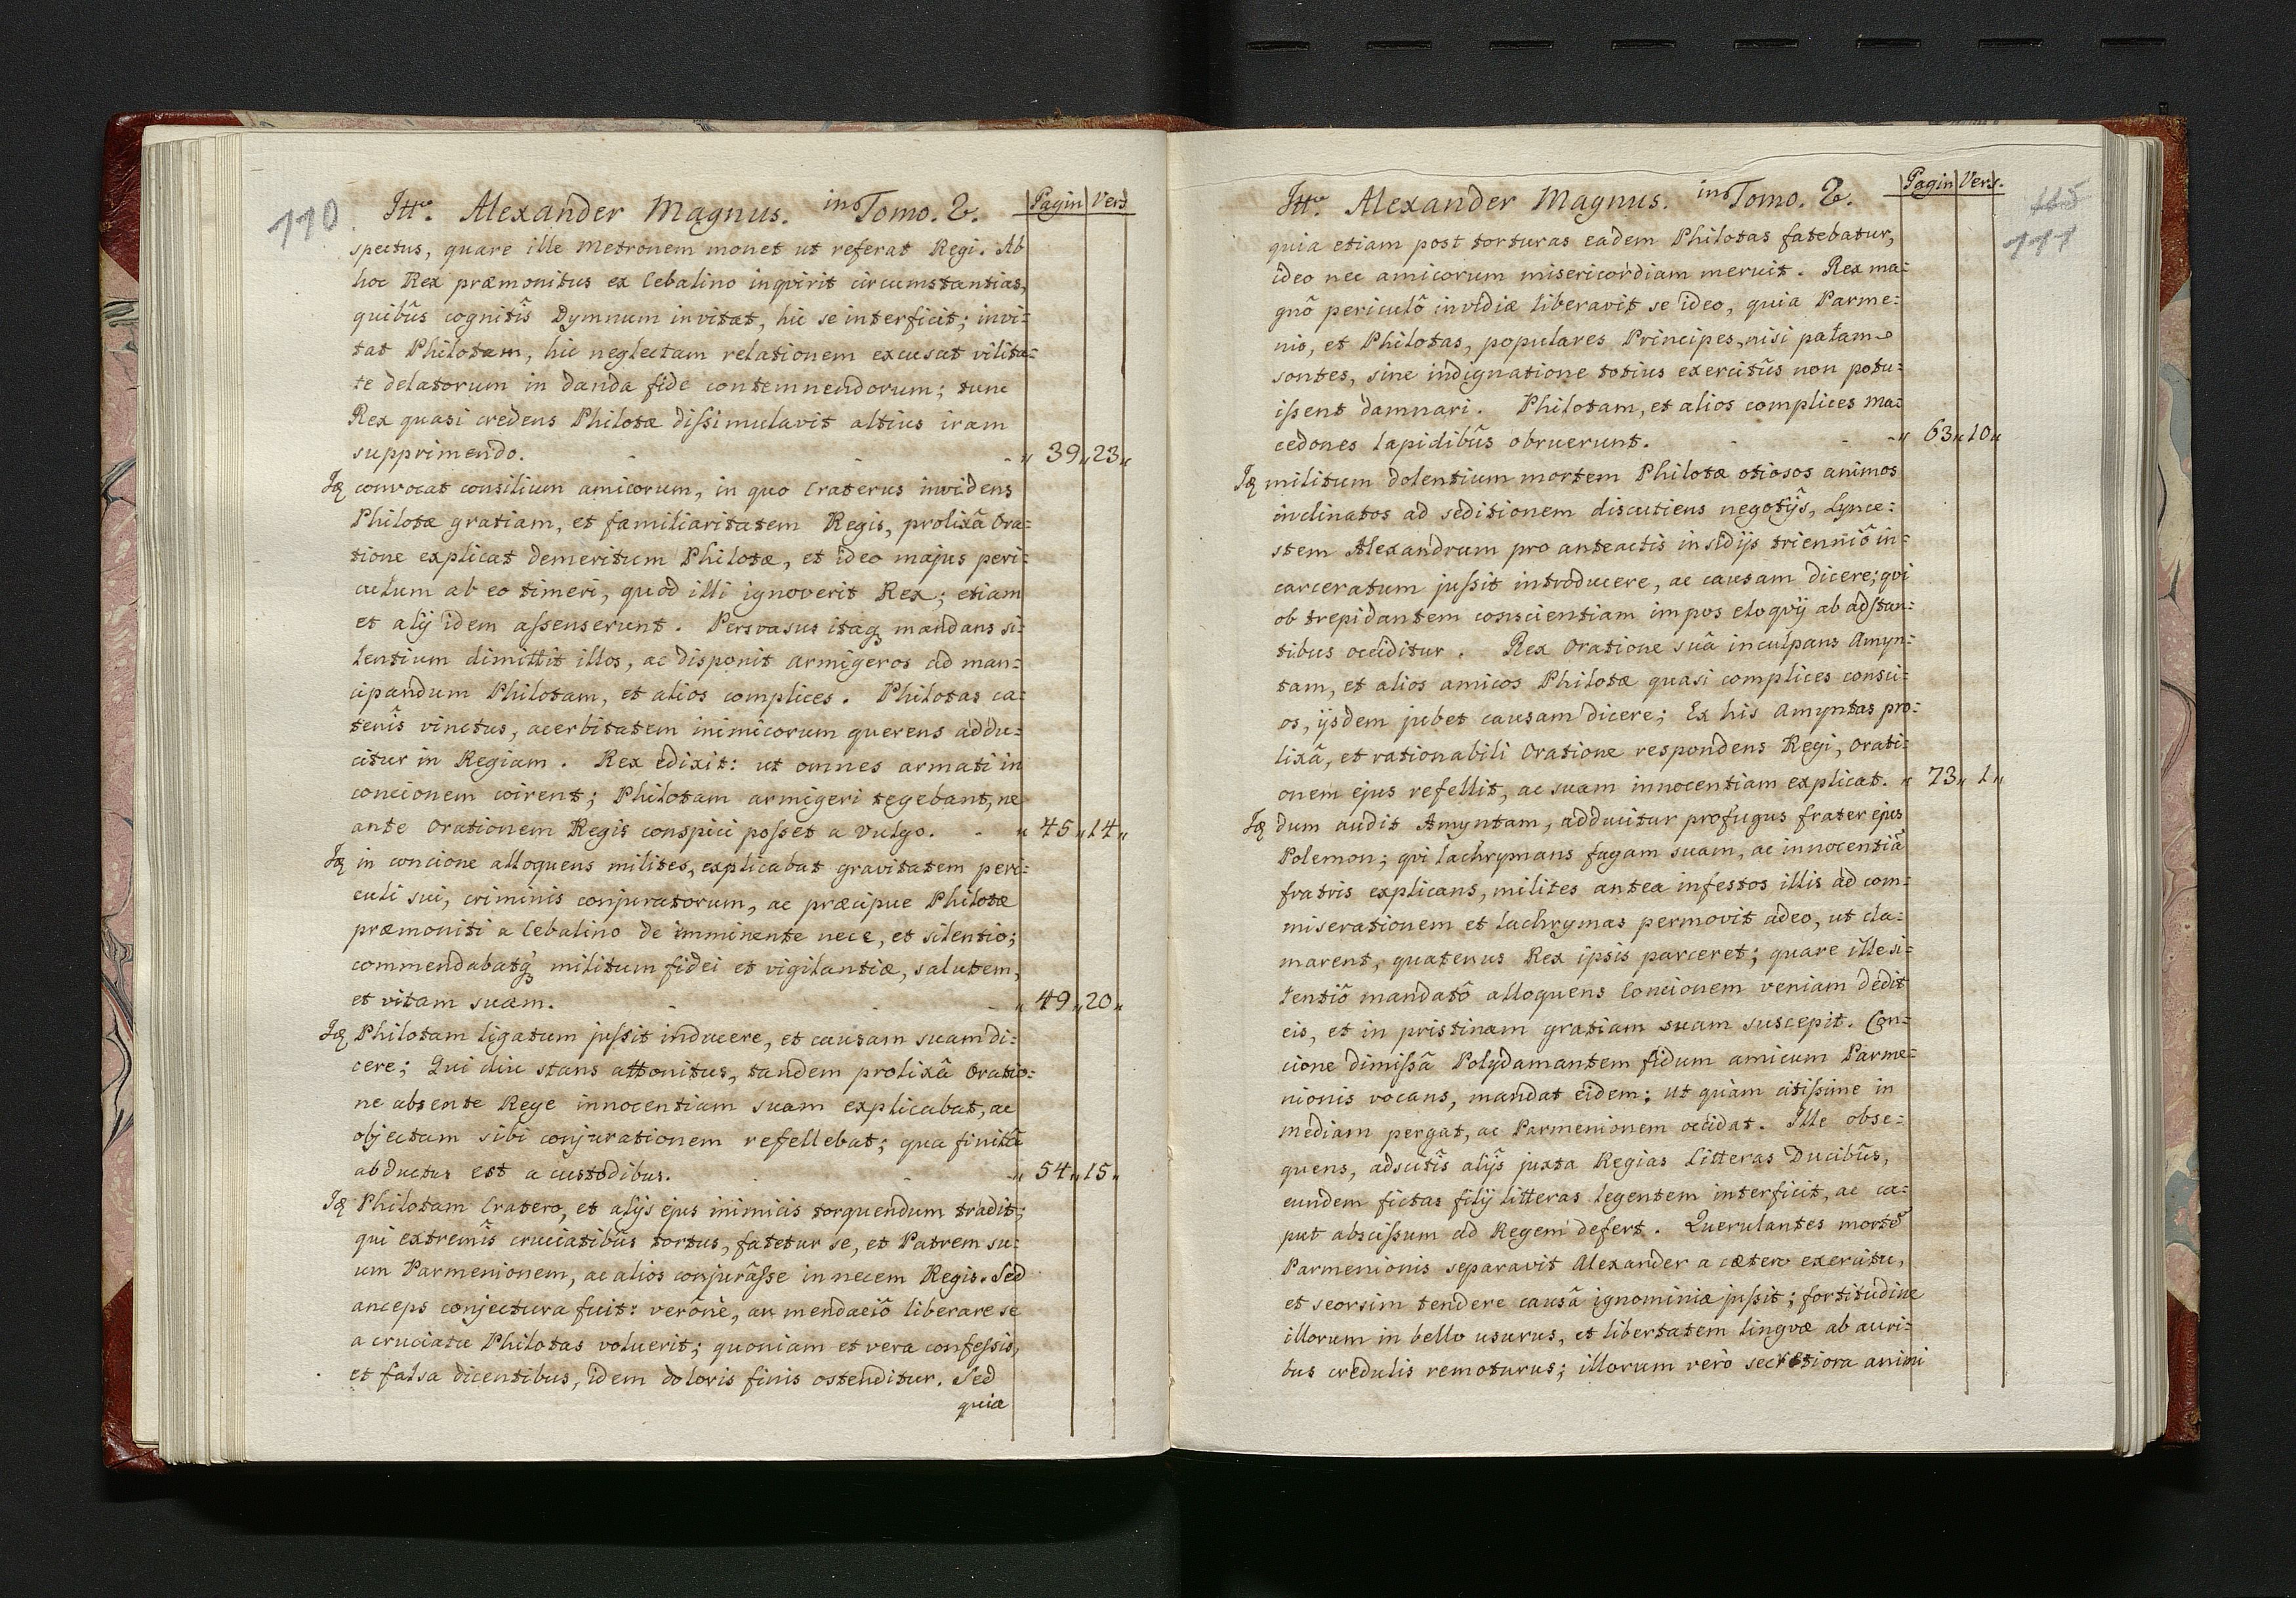 110.
Itt͠. Alexander Magnus. in Tomo. 2. Pagin Vers
spectus, quare ille Metronem monet ut referat Regi. Ab
hoc Rex præmonitus ex Cebalino inqvirit circumstantias,
quibûs cognitîs Dymnum invitat, hic se interficit; invi=
tat Philotam, hic neglectam relationem excusat vilita=
te delatorum in danda fide contemnendorum; tunc
Rex quasi credens Philotæ dissimulavit altius iram
supprimendo. - - -„ 39„23„
Iꝗ convocat consilium amicorum, in quo Craterus invidens
Philotæ gratiam, et familiaritatem Regis, prolixâ Ora=
tione explicat demeritum Philotæ, et ideo majus peri=
culum ab eo timeri, quod illi ignoverit Rex; etiam
et alij idem assenserunt. Persvasus itaꝗ mandans si=
lentium dimittit illos, ac disponit armigeros ad man=
cipandum Philotam, et alios complices. Philotas ca=
tenîs vinctus, acerbitatem inimicorum querens addu=
citur in Regiam. Rex edixit: ut omnes armati in
concionem coirent; Philotam armigeri tegebant, ne
ante Orationem Regis conspici posset a vulgo. - „ 45„14„
Iꝗ in concione alloquens milites, explicabat gravitatem peri=
culi sui, criminis conjuratorum, ac præcipue Philotæ
præmoniti a Cebalino de imminente nece, et silentio;
commendabatꝗ militum fidei et vigilantiæ, salutem,
et vitam suam. - - -„ 49„20„
Iꝗ Philotam ligatum jussit inducere, et causam suam di=
cere; Qui diu stans attonitus, tandem prolixâ Oratio=
ne absente Rege innocentiam suam explicabat, ac
objectam sibi conjurationem refellebat; qua finitâ
abductus est a custodibus. - - -„ 54„15„
Iꝗ Philotam Cratero, et alijs ejus inimicis torquendum tradit;
qui extremîs cruciatibûs tortus, fatetur se, et Patrem su=
um Parmenionem, ac alios conjurâsse in necem Regis. Sed
anceps conjectura fuit: verône, an mendaciô liberare se
a cruciatu Philotas voluerit; quoniam et vera confessis,
et falsa dicentibus, idem doloris finis ostenditur. Sed
quia
Itt͠. Alexander Magnus. in Tomo. 2. Pagin Vers.
115
111
quia etiam post torturas eadem Philotas fatebatur,
ideo nec amicorum misericordiam meruit. Rex ma=
gnô periculô invidiæ liberavit se ideo, quia Parme=
nio, et Philotas, populares Principes, nisi palam
sontes, sine indignatione totius exercitûs non potu=
issent damnari. Philotam, et alios complices Ma=
cedones lapidibûs obruerunt. - - -„ 63„10„
Iꝗ militum dolentium mortem Philotæ otiosos animos
inclinatos ad seditionem discutiens negotijs, Lynce=
stem Alexandrum pro anteactis insidijs trienniô in=
carceratum jussit introducere, ac causam dicere; qvi
ob trepidantem conscientiam impos eloqvij ab adstan=
tibus occiditur. Rex Oratione suâ inculpans Amyn=
tam, et alios amicos Philotæ quasi complices consci=
os, ijsdem jubet causam dicere; Ex his Amyntas pro=
lixâ, et rationabili Oratione respondens Regi, Orati=
onem ejus refellit, ac suam innocentiam explicat. „ 73„1„
Iꝗ dum audit Amyntam, adducitur profugus frater ejus
Polemon; qvi lachrymans fugam suam, ac innocentiã
fratris explicans, milites antea infestos illis ad com=
miserationem et lachrymas permovit adeo, ut cla=
marent, quatenus Rex ipsis parceret; quare ille si=
lentiô mandatô alloquens Concionem veniam dedit
eis, et in pristinam gratiam suam suscepit. Con=
cione dimissâ Polydamantem fidum amicum Parme=
nionis vocans, mandat eidem; ut quàm citissime in
Mediam pergat, ac Parmenionem occidat. Ille obse=
quens, adscitîs alijs juxta Regias Litteras Ducibûs,
eundem fictas filij litteras legentem interficit, ac ca=
put abscissum ad Regem defert. Querulantes mortẽ
Parmenionis separavit Alexander a cætero exercitu,
et seorsim tendere causâ ignominiæ jussit; fortitudine
illorum in bello usurus, et libertatem lingvæ ab auri=
bus credulis remoturus; illorum verò secretiora animi